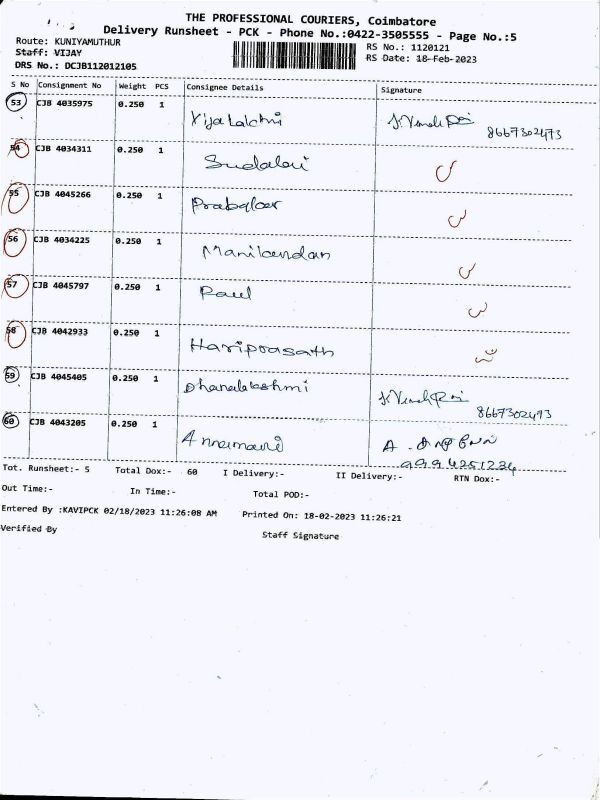 THE PROFESSIONAL COURIERS, Coimbatore
Delivery Runsheet - PCK - Phone No.:0422-3505555 - Page No.:5
Route: KUNIYAMUTHUR
RS No.: 1120121
Staff: VIJAY
RS Date: 18-Feb-2023
DRS No.: DCJB112012105
S No Consignment No Weight PCS Consignee Details Signature
53 CJB 4035975 0.250 1
Vijalakchi 8667302473
54 CJB 4034311 0.250 1
Sudalai
55 CJB 4045266 0.250 1
Prabakar
56 CJB 4034225 0.250 1
Manikandan
57 CJB 4045797 0.250 1
Paul
58 CJB 4042933 0.250 1
Hariprasath
59 CJB 4045405 0.250 1
Dhanalakshmi
8667302473
60 CJB 4043205 0.250 1
A.
9994251234
Tot. Runsheet:- 5 Total Dox:- 60 I Delivery:- II Delivery:- RTN Dox:-
Out Time:- In Time:- Total POD:-
Entered By :KAVIPCK 02/18/2023 11:26:08 AM Printed On: 18-02-2023 11:26:21
Verified By Staff Signature